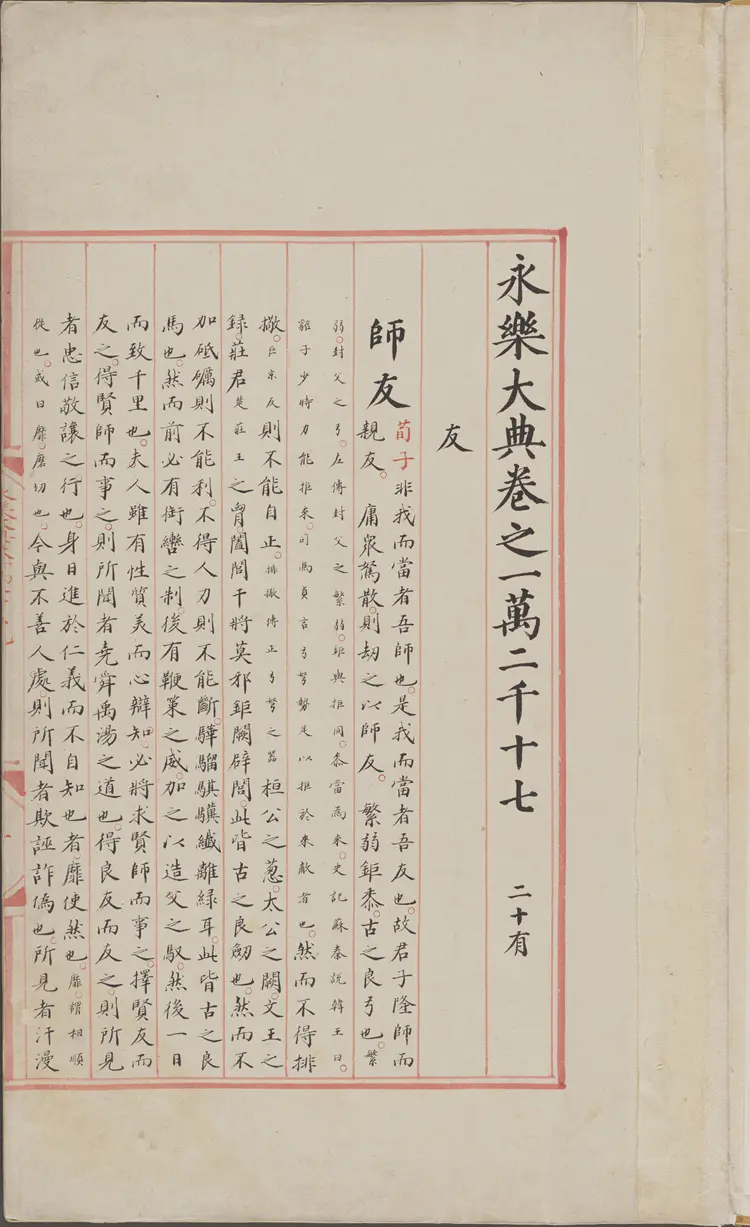 永樂大典卷之一萬二千十七 二十有
友
師友 荀子非我而當者吾師也。是我而當者吾友也。故君子隆師而
親友。庸衆駑散。則劫之以師友。 繁弱鉅黍。古之良弓也。繁
弱。封父之弓。左傳封父之繁弱。鉅與拒同。黍當爲來。史記蘇秦說韓王曰。
谿子少時力能拒來。司馬貞言弓弩勢足以拒於來敵者也。然而不得排
撒。巨京反則不能自正。排撒傳正弓弩之器桓公之葱。太公之闕。文王之
録。莊君楚莊王之曶。闔閭干將莫邪鉅闕辟閭。此皆古之良劒也。然而不
加砥礪則不能利。不得人力則不能斷。驊騮騏驥纖離緑耳。此皆古之良
馬也。然而前必有銜轡之制。後有鞭策之威。加之以造父之馭。然後一日
而致千里也。夫人雖有性質美而心辯知。必將求賢師而事之。擇賢友而
友之。得賢師而事之。則所聞者堯舜禹湯之道也。得良友而友之。則所見
者忠信敬讓之行也。身日進於仁義而不自知也者。靡使然也。靡。謂相順
從也。或曰靡。磨切也。今與不善人處。則所聞者欺誣詐僞也。所見者汙漫